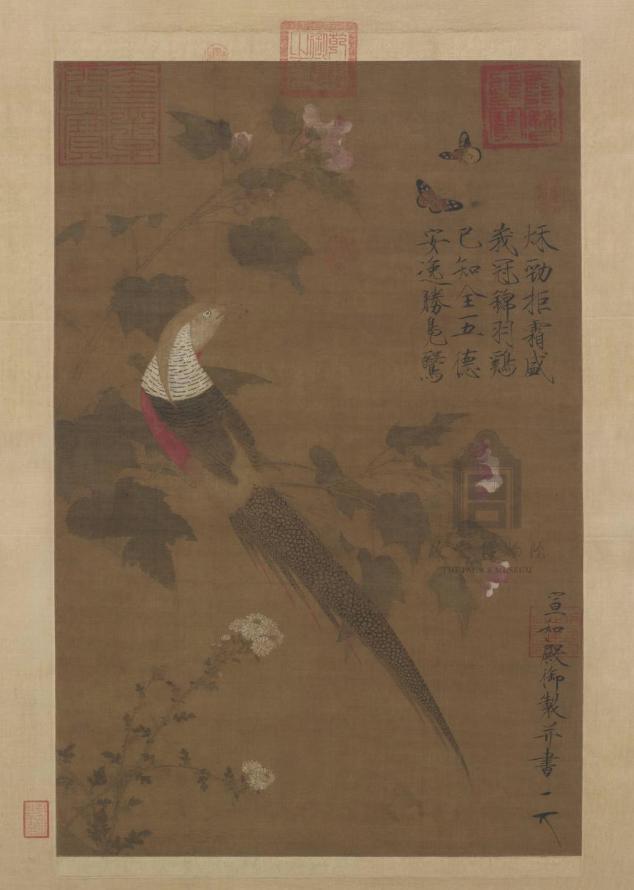 秋勁拒霜盛
峩冠錦羽鷄
已知全五德
安逸勝鳧鷖
宣和殿御製并書
故宫博物院
THE PALACE MUSEUM